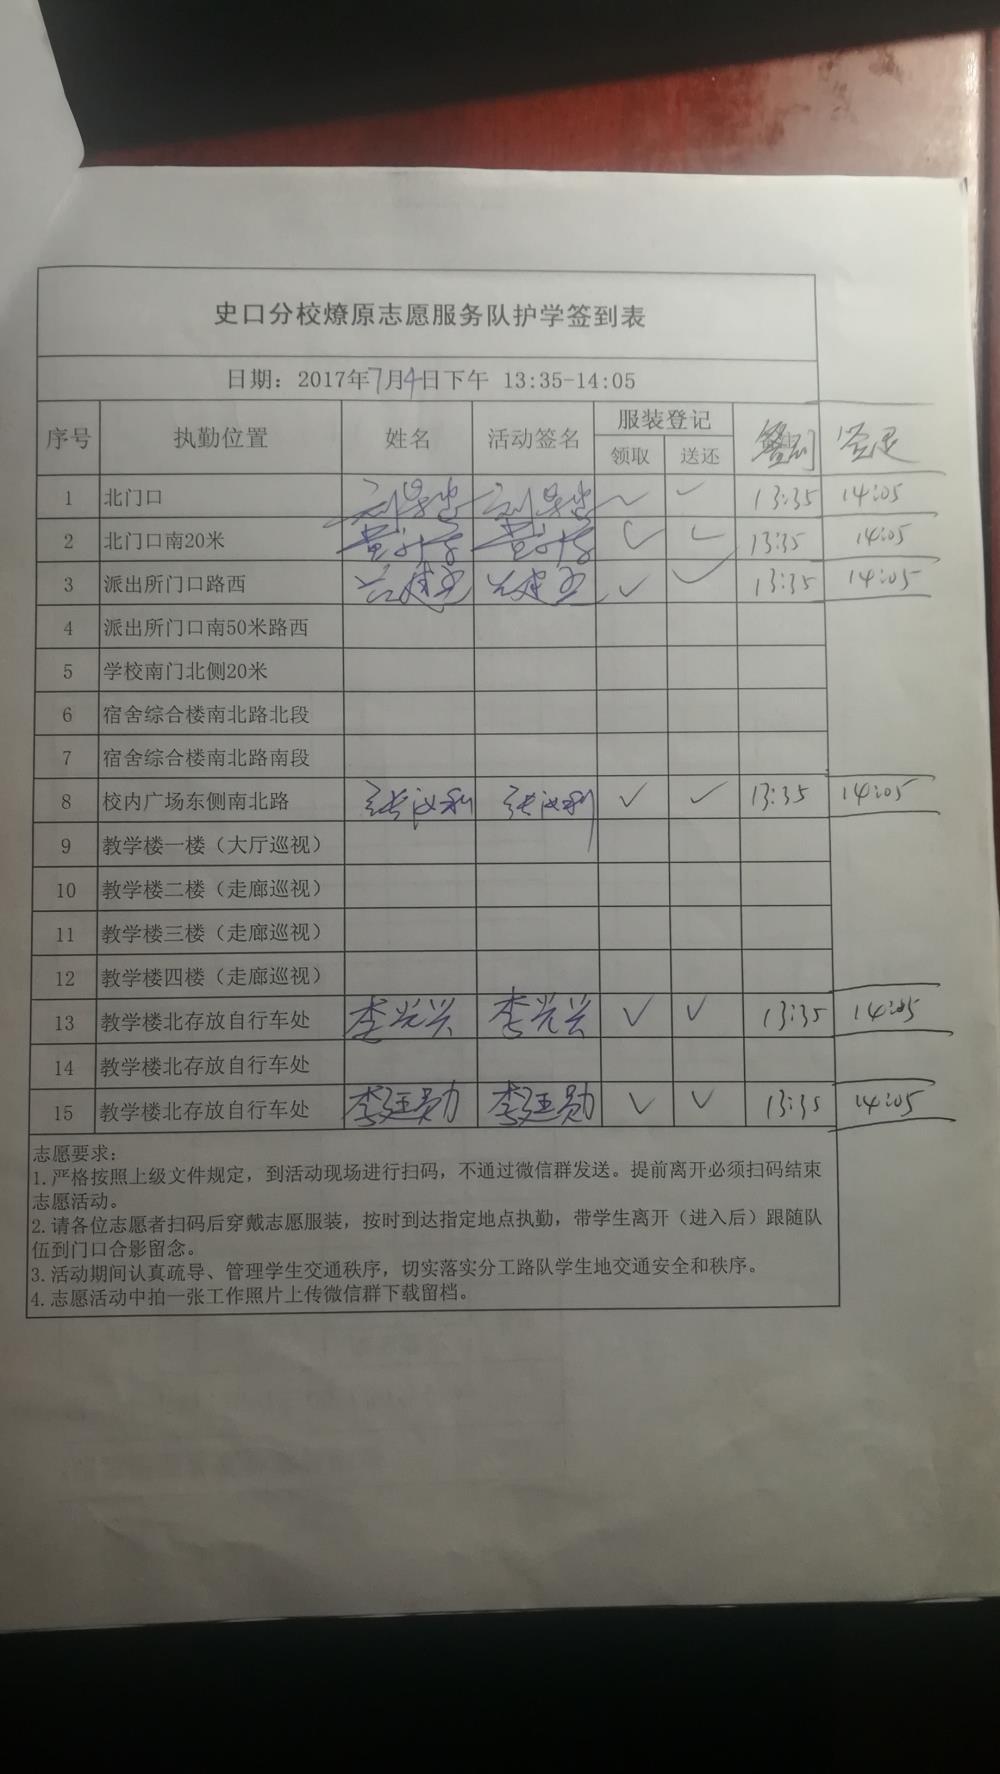 史口分校燎原志愿服务队护学签到表
日期：2017年7月4日下午 13:35-14:05
序号 执勤位置 姓名 活动签名 服装登记 签到 签退
领取 送还
1 北门口 ✓ ✓ 13:35 14:05
2 北门口南20米 ✓ ✓ 13:35 14:05
3 派出所门口路西 ✓ ✓ 13:35 14:05
4 派出所门口南50米路西
5 学校南门北侧20米
6 宿舍综合楼南北路北段
7 宿舍综合楼南北路南段
8 校内广场东侧南北路 ✓ ✓ 13:35 14:05
9 教学楼一楼（大厅巡视）
10 教学楼二楼（走廊巡视）
11 教学楼三楼（走廊巡视）
12 教学楼四楼（走廊巡视）
13 教学楼北存放自行车处 李光兴 李光兴 ✓ ✓ 13:35 14:05
14 教学楼北存放自行车处
15 教学楼北存放自行车处 李廷勋 李廷勋 ✓ ✓ 13:35 14:05
志愿要求：
1.严格按照上级文件规定，到活动现场进行扫码，不通过微信群发送。提前离开必须扫码结束
志愿活动。
2.请各位志愿者扫码后穿戴志愿服装，按时到达指定地点执勤，带学生离开（进入后）跟随队
伍到门口合影留念。
3.活动期间认真疏导、管理学生交通秩序，切实落实分工路队学生地交通安全和秩序。
4.志愿活动中拍一张工作照片上传微信群下载留档。